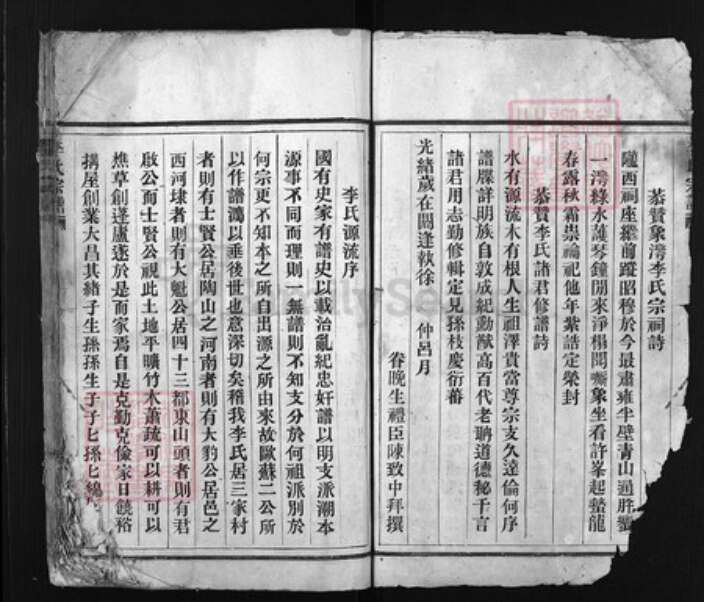 恭贊象灣李氏宗祠詩
隴西祠座繼前蹤昭穆於今最肅雍半壁青山迴
一灣綠水護琴鐘閒來淨榻問象坐看許峯起蟄龍
春露秋霜崇綸祀他年紫誥定榮封
恭贊李氏諸君修譜詩
水有源流木有根人生祖澤貴當尊宗支久遠倫何序
譜牒詳明族自敦成紀勳猷高百代老聃道德秘千言
諸君用志勤修輯定見孫枝慶衍蕃
光緒歲在閼逢執徐 仲呂月
眷晚生禮臣陳致中拜撰
李氏源流序
國有史家有譜史以載治亂紀忠奸譜以明支派溯本
源事不同而理則一無譜則不知支分於何祖派別於
何宗更不知本之所自出源之所由來故歐蘇二公所
以作譜鴻以垂後世也意深切矣稽我李氏居三家村
者則有士賢公居陶山之河南者則有大豹公居邑之
西河埭者則有大魁公居四十三都東山頭者則有君
啟公而士賢公視此土地平曠竹木蕭疏可以耕可以
樵草創蓬廬遂於是而家焉自是克勤克儉家日饒裕
搆屋創業大昌其緒子生孫孫生子子匕孫匕綿
李氏宗譜